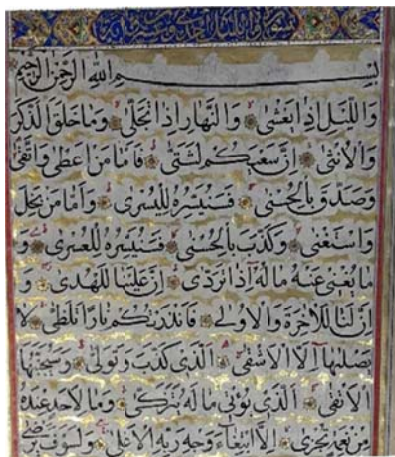 بِسْمِ اللهِ الرَّحْمٰنِ الرَّحِيمِ
وَاللَّيْلِ اِذَا يَغْشٰى وَالنَّهَارِ اِذَا تَجَلّٰى وَمَا خَلَقَ الذَّكَرَ
وَالْاُنْثٰى اِنَّ سَعْيَكُمْ لَشَتّٰى فَاَمَّا مَنْ اَعْطٰى وَاتَّقٰى
وَصَدَّقَ بِالْحُسْنٰى فَسَنُيَسِّرُهُ لِلْيُسْرٰى وَاَمَّا مَنْ بَخِلَ
وَاسْتَغْنٰى وَكَذَّبَ بِالْحُسْنٰى فَسَنُيَسِّرُهُ لِلْعُسْرٰى وَ
مَا يُغْنِي عَنْهُ مَالُهُ اِذَا تَرَدّٰى اِنَّ عَلَيْنَا لَلْهُدٰى وَ
اِنَّ لَنَا لَلْاٰخِرَةَ وَالْاُولٰى فَاَنْذَرْتُكُمْ نَارًا تَلَظّٰى لَا
يَصْلٰيهَا اِلَّا الْاَشْقٰى اَلَّذِي كَذَّبَ وَتَوَلّٰى وَسَيُجَنَّبُهَا
الْاَتْقٰى اَلَّذِي يُؤْتِي مَالَهُ يَتَزَكّٰى وَمَا لِاَحَدٍ عِنْدَهُ
مِنْ نِعْمَةٍ تُجْزٰى اِلَّا ابْتِغَاءَ وَجْهِ رَبِّهِ الْاَعْلٰى وَلَسَوْفَ يَرْضٰى